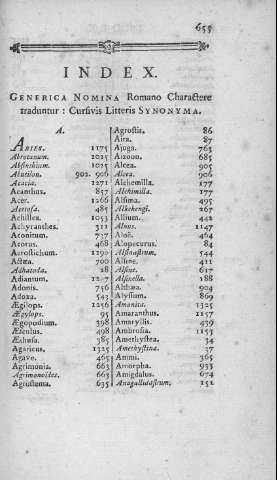 655
INDEX.
GENERICA NOMINA Romano Charactere
traduntur : Cursivis Litteris SYNONYMA.
A.
ABIES. 1175
Abrotanum. 1025
Absinthium. 1025
Abutilon. 902. 906
Acacia. 1271
Acanthus. 857
Acer. 1266
Acetosa. 485
Achillea. 1053
Achyranthes. 311
Aconitum. 737
Acorus. 468
Acrostichum. 1290
Actæa. 700
Adhatoda. 28
Adiantum.
Adonis. 756
Adoxa. 543
Ægilops. 1216
Ægylops. 95
Ægopodium. 398
Æsculus. 498
Æthusa. 385
Agaricus. 1325
Agave. 465
Agrimonia. 663
Agrimonoides. 665
Agrostema. 635
Agrostis. 86
Aira. 87
Ajuga. 763
Aizoon. 685
Alcea. 905
Alcea. 906
Alchemilla. 177
Alchimilla. 177
Alisma. 495
Alkekengi. 267
Allium. 442
Alnus. 1147
Aloë. 464
Alopecurus. 84
Alsinastrum. 544
Alsine. 421
Alsine. 617
Alsinella. 188
Althæa. 904
Alyssum. 869
Amanita. 1325
Amaranthus. 1157
Amaryllis. 439
Ambrosia. 1153
Amethystea. 34
Amethystina. 37
Ammi. 365
Amorpha. 933
Amigdalus. 674
Anagallidastrum. 151